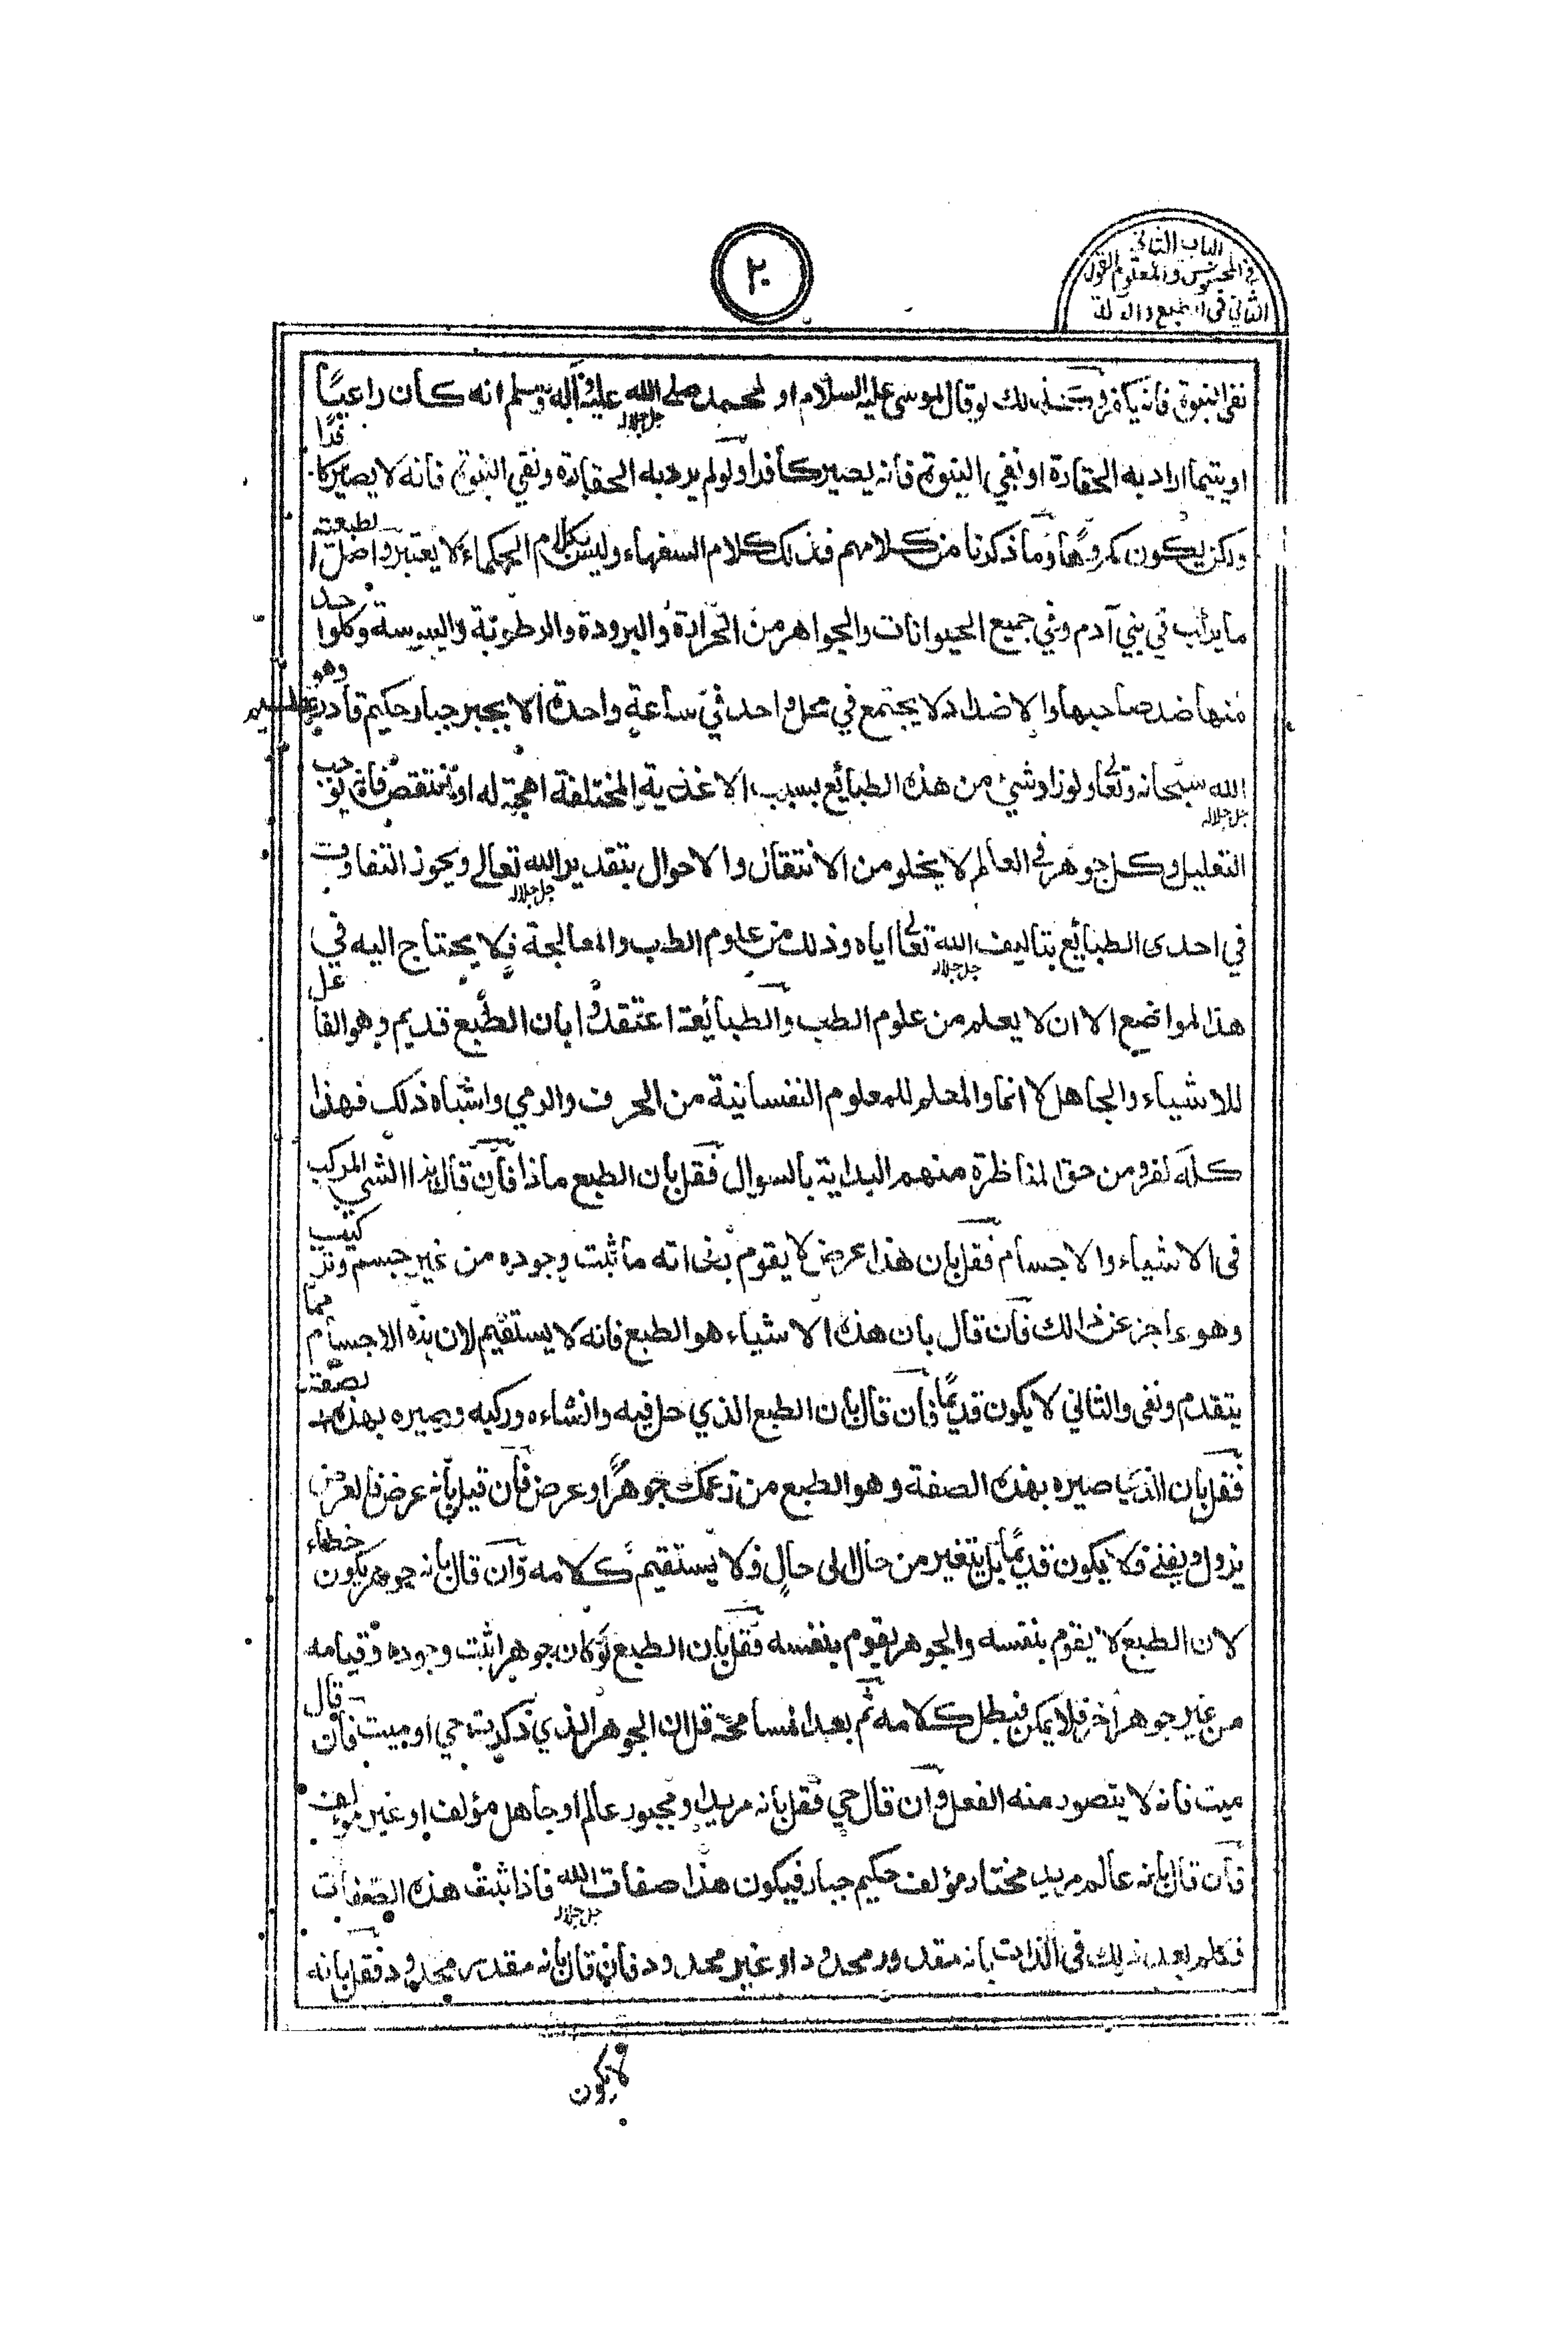 الباب الثاني
في المحسوس والمعلوم القول
الثاني في الطبع والآلة
٢٠
نفى النبوة فانه يكفر وكذلك لو قال لموسى عليه السلام او لمحمد صلى الله عليه وآله وسلم انه كان راعيًا
جل جلاله
او يتيما اراد به الحقارة او نفي النبوة فانه يصير كافرا ولو لم يرد به الحقارة ونفي النبوة فانه لا يصير كافرًا
ولكن يكون مكروهًا وما ذكرنا من كلامهم فذلك كلام السفهاء وليس بكلام الحكماء لا يعتبر واصل الطبيعة
ما يركب في بني آدم وفي جميع الحيوانات والجواهر من الحرارة والبرودة والرطوبة واليبوسة وكل واحد
منها ضد صاحبها والاضداد لا يجتمع في محل واحد في ساعة واحدة الا بجبر جبار حكيم قادر عليم وهو
الله سبحانه وتعالى ولو زاد شيئ من هذه الطبائع بسبب الاغذية المختلفة اهجة له او ينتقص فانه يوجب
جل جلاله
التعليل وكل جوهر في العالم لا يخلو من الانتقال والاحوال بتقدير الله تعالى ويجوز التفاوت
جل جلاله
في احدى الطبائع بتاليف الله تعالى اياه وذلك من علوم الطب والمعالجة فلا يحتاج اليه في
جل جلاله
هذا المواضع الا ان لا يعلم من علوم الطب والطبائعة اعتقدوا بان الطبع قديم وهو الفاعل
للاشياء والجاهل لا انما والمعلم للمعلوم النفسانية من الحرف والرمي واشباه ذلك فهذا
كله لفر ومن حق المناظرة منهم البداية بالسوال فقل بان الطبع ماذا فان قال هذا الشي المركب
فى الاشياء والاجسام فقل بان هذا عرض لا يقوم بذاته ما ثبت وجوده من غير جسم وتركيب
وهو عاجز عن ذالك فان قال بان هذه الاشياء هو الطبع فانه لا يستقيم لان هذه الاجسام مما
يتقدم ونفى والثاني لا يكون قديمًا فان قال بان الطبع الذي حل فيه وانشاءه وركبه وصيره بهذه الصفة
فقل بان الذي صيره بهذه الصفة وهو الطبع من زعمك جوهرًا وعرض فان قيل بانه عرض فالعرض
يزول ويفنى فلا يكون قديمًا بل يتغير من حال الى حال فلا يستقيم كلامه وان قال بانه جوهر يكون خطاء
لان الطبع لا يقوم بنفسه والجوهر يقوم بنفسه فقل بان الطبع لو كان جوهرا ثبت وجوده وقيامه
من غير جوهر آخر فلا يمكن فبطل كلامه ثم بعد المسامحة قل ان الجوهر الذي ذكرته حي او ميت فان قال
ميت فانه لا يتصور منه الفعل وان قال حي فقل بانه مريد او مجبور عالم او جاهل مؤلف او غير مؤلف
فان قال بانه عالم مريد مختار مؤلف حكيم جبار فيكون هذا صفات الله فاذا ثبت هذه الصفات
جل جلاله
فكلم بعد ذلك فى الذات بانه مقدور محدود او غير محدود فان قال بانه مقدر محدود فقل بانه
لا يكون